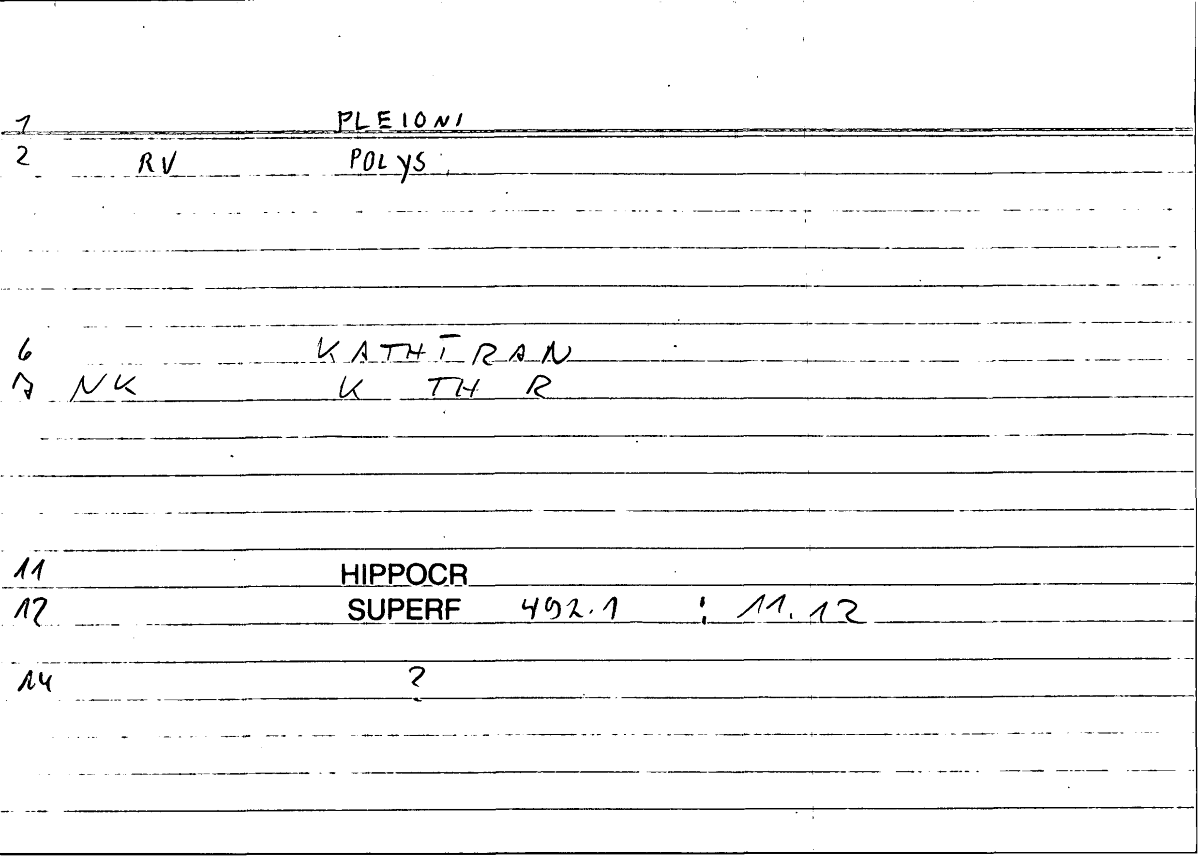 1 PLEIONI
2 RV POLYS
6 KATHĪRAN
7 NK K TH R
11 HIPPOCR
12 SUPERF 492.1 : 11.12
14 ?